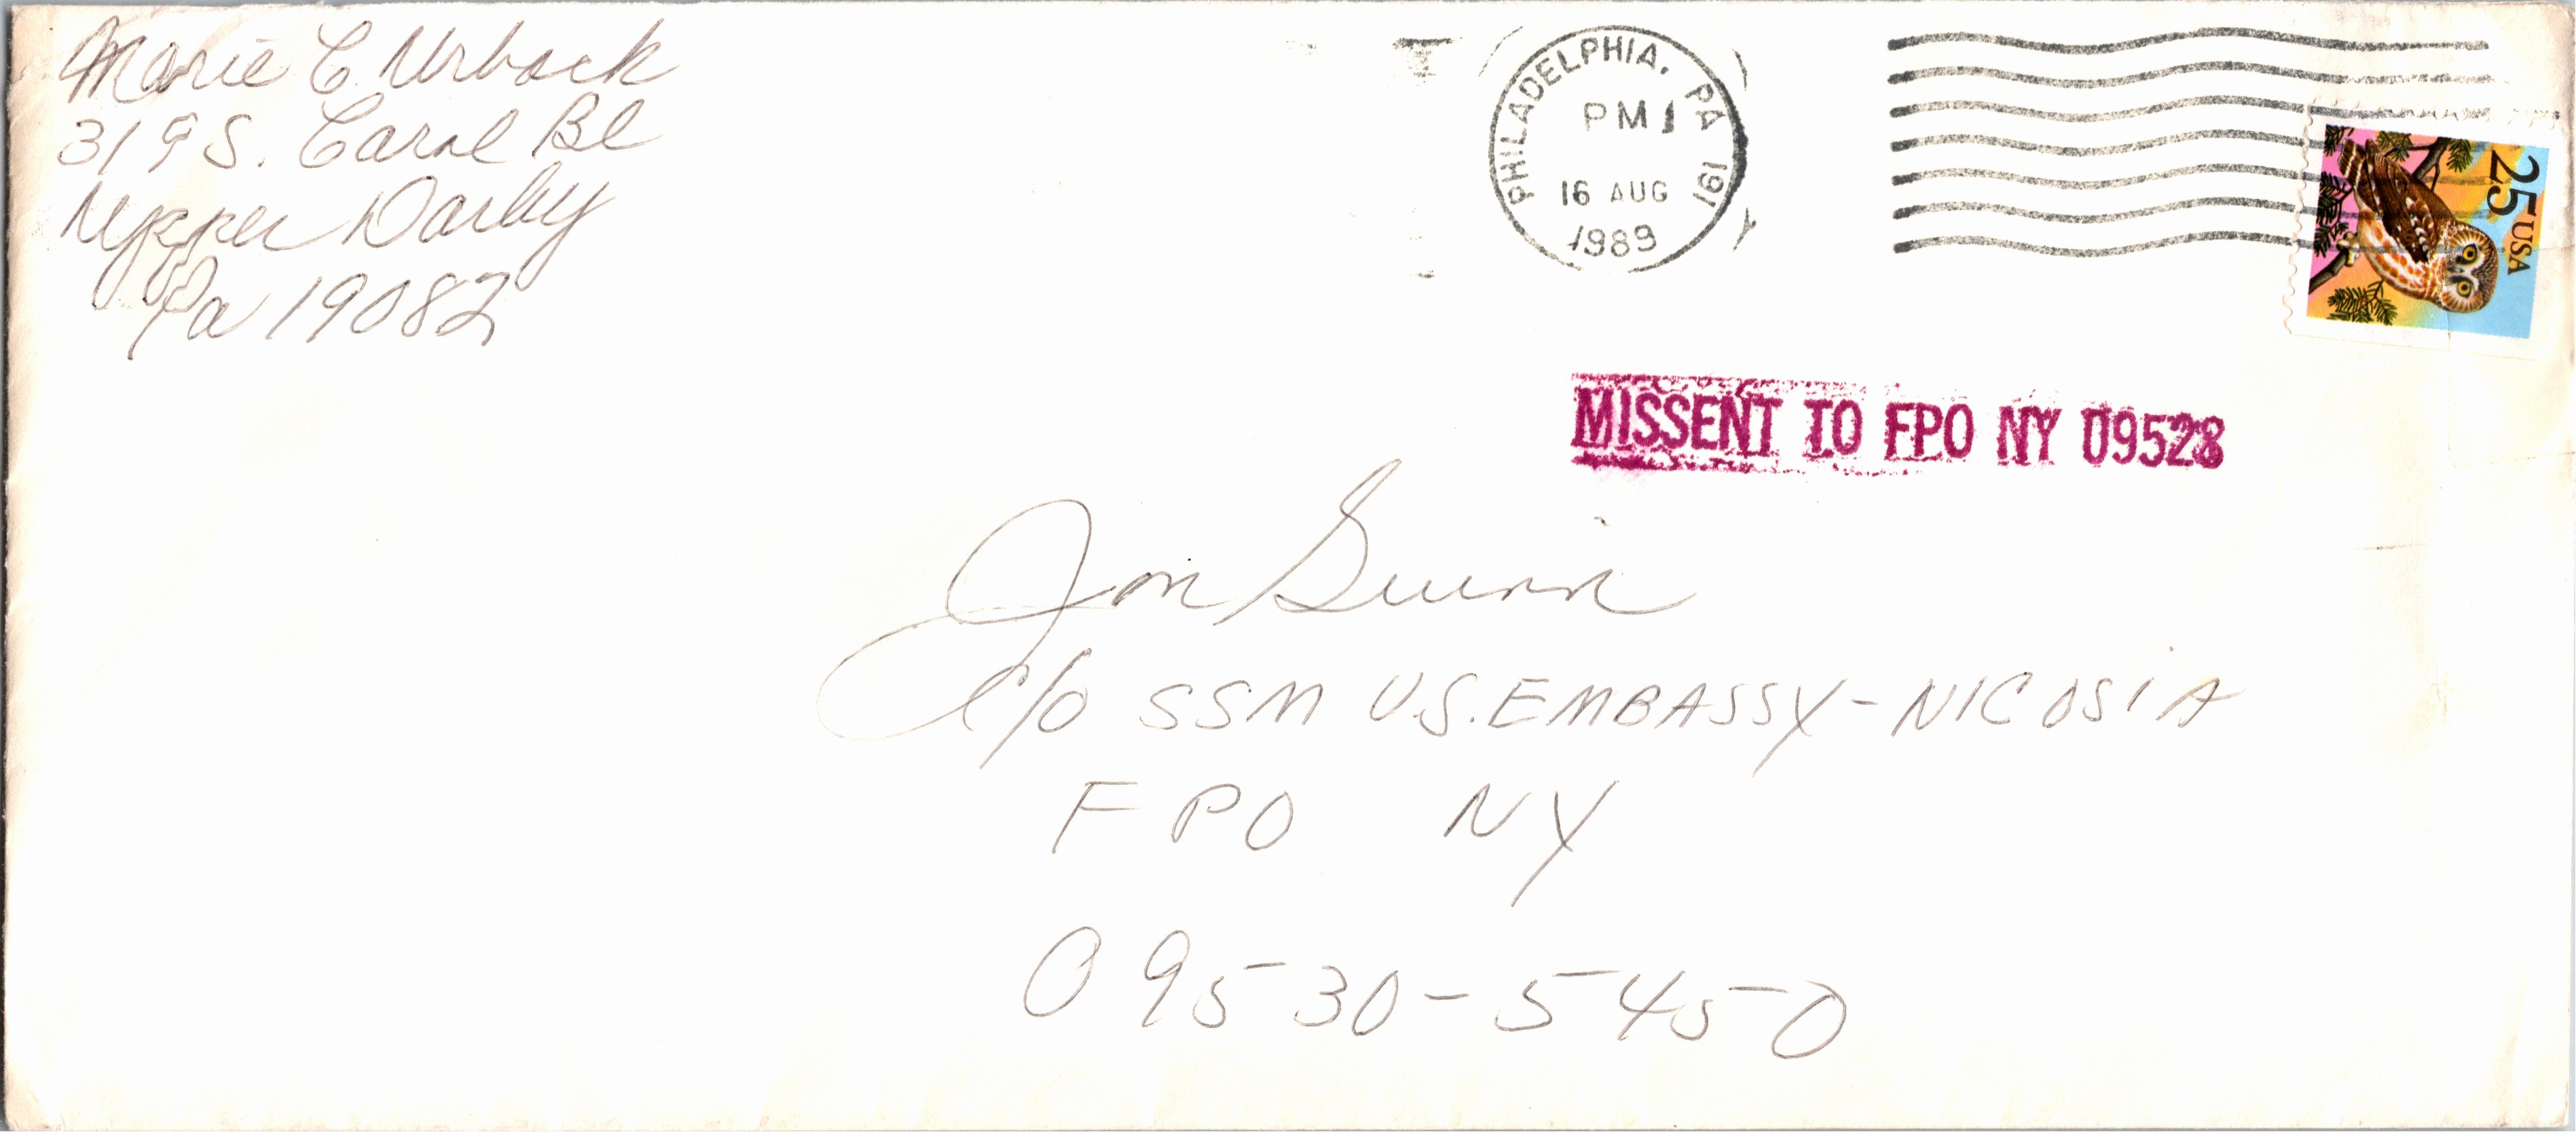 Marie C. Urback
319 S. Carol Bl
Upper Darby
Pa 19082
PHILADELPHIA, PA 191
PM
16 AUG
1989
25 USA
MISSENT TO FPO NY 09528
Jon Guinn
c/o SSM U.S. EMBASSY - NICOSIA
FPO NY
09530-5450